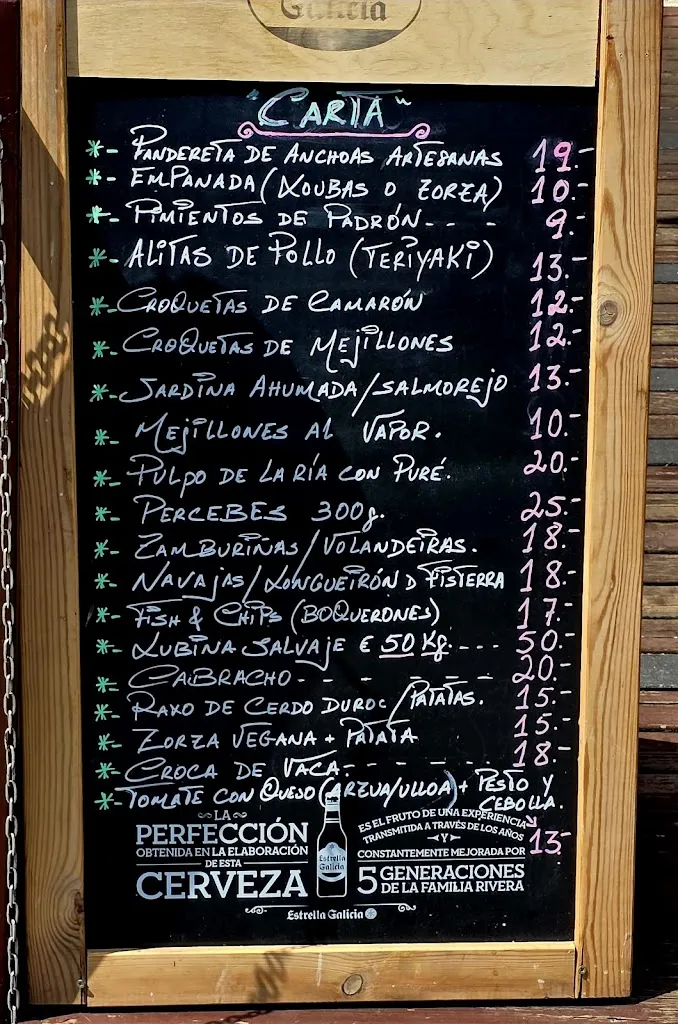 Galicia
"CARTA"
*- PANDERETA DE ANCHOAS ARTESANAS 19.-
*- EMPANADA (XOUBAS O ZORZA) 10.-
*- PIMIENTOS DE PADRÓN - - - 9.-
*- ALITAS DE POLLO (TERIYAKI) 13.-
*- CROQUETAS DE CAMARÓN 12.-
*- CROQUETAS DE MEJILLONES 12.-
*- SARDINA AHUMADA/SALMOREJO 13.-
*- MEJILLONES AL VAPOR. 10.-
*- PULPO DE LA RÍA CON PURÉ. 20.-
*- PERCEBES 300g. 25.-
*- ZAMBURIÑAS/VOLANDEIRAS. 18.-
*- NAVAJAS/LONGUEIRÓN D FISTERRA 18.-
*- FISH & CHIPS (BOQUERONES) 17.-
*- LUBINA SALVAJE € 50 Kg. - - - - 50.-
*- CABRACHO - - - - - - 20.-
*- RAXO DE CERDO DUROC/PATATAS. 15.-
*- ZORZA VEGANA + PATATA 15.-
*- CROCA DE VACA. - - - - - - 18.-
*- TOMATE CON QUEJO (ARZUA/ULLOA) + PESTO Y
CEBOLLA.
13.-
LA
PERFECCIÓN
OBTENIDA EN LA ELABORACIÓN
DE ESTA
CERVEZA
Estrella Galicia
ES EL FRUTO DE UNA EXPERIENCIA
TRANSMITIDA A TRAVÉS DE LOS AÑOS
Y
CONSTANTEMENTE MEJORADA POR
5 GENERACIONES
DE LA FAMILIA RIVERA
Estrella Galicia